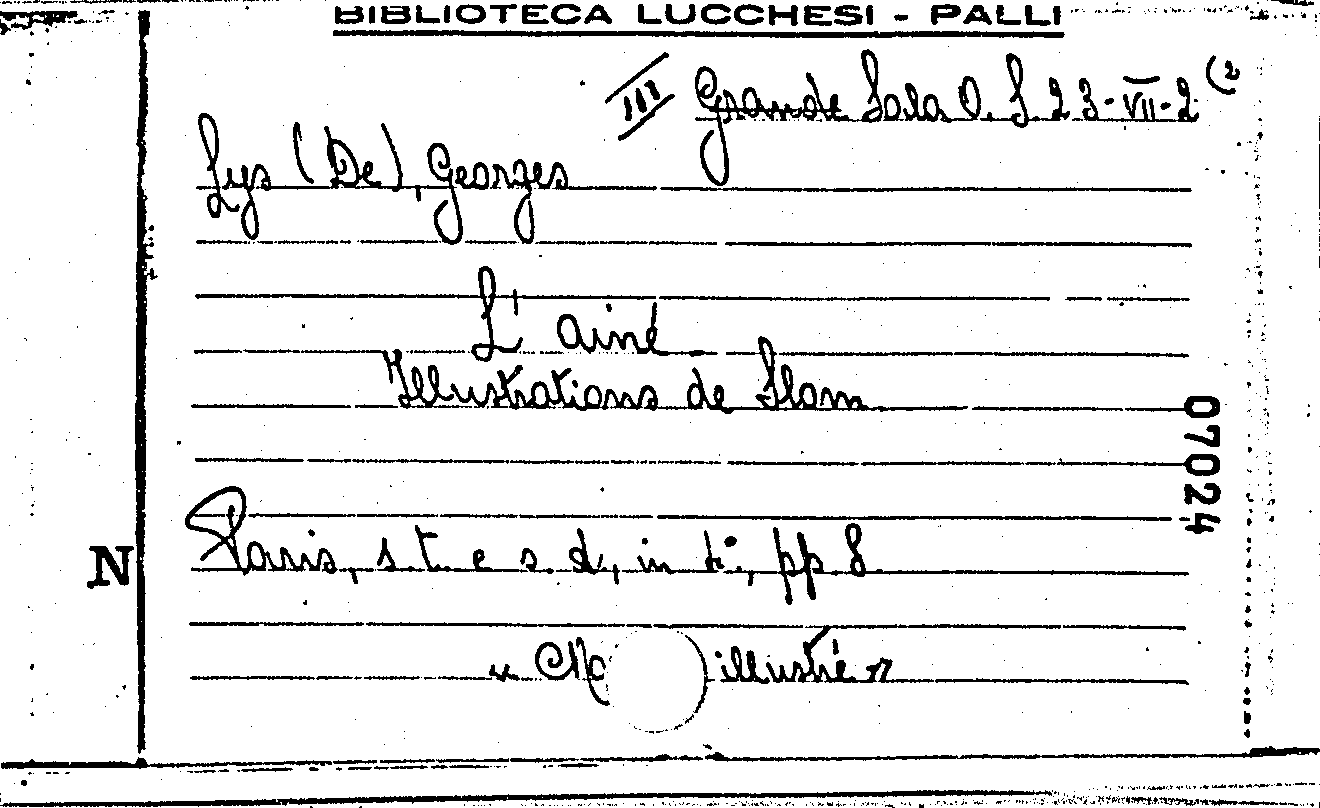 BIBLIOTECA LUCCHESI - PALLI
III Grande Sala O. S. 23-VII-2 (2
Lys (De), Georges
L'ainé
Illustrations de Slom
Paris, s. t. e s. d., in 4°, pp. 8
07024
N
illustré"